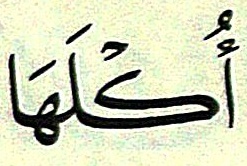 أُكْلَهَا